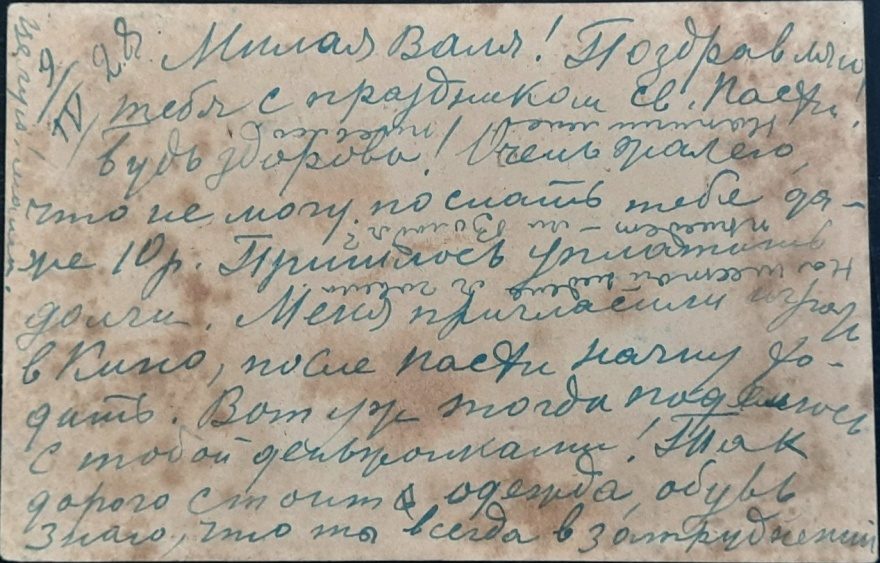 9/IV 28.
Милая Валя! Поздравляю
тебя с праздником св. Пасхи.
Будь здорова! Очень жалею,
что не могу послать тебе да-
же 10 р. Пришлось уплатить
долги. Меня пригласили играть
в Кино, после Пасхи начну хо-
дить. Вот уж тогда поделюсь
с тобой деньжонками! Так
дорого стоит одежда, обувь
Знаю, что ты всегда в затруднении
Напиши мне
приедет-ли Володя?
На шестой неделе